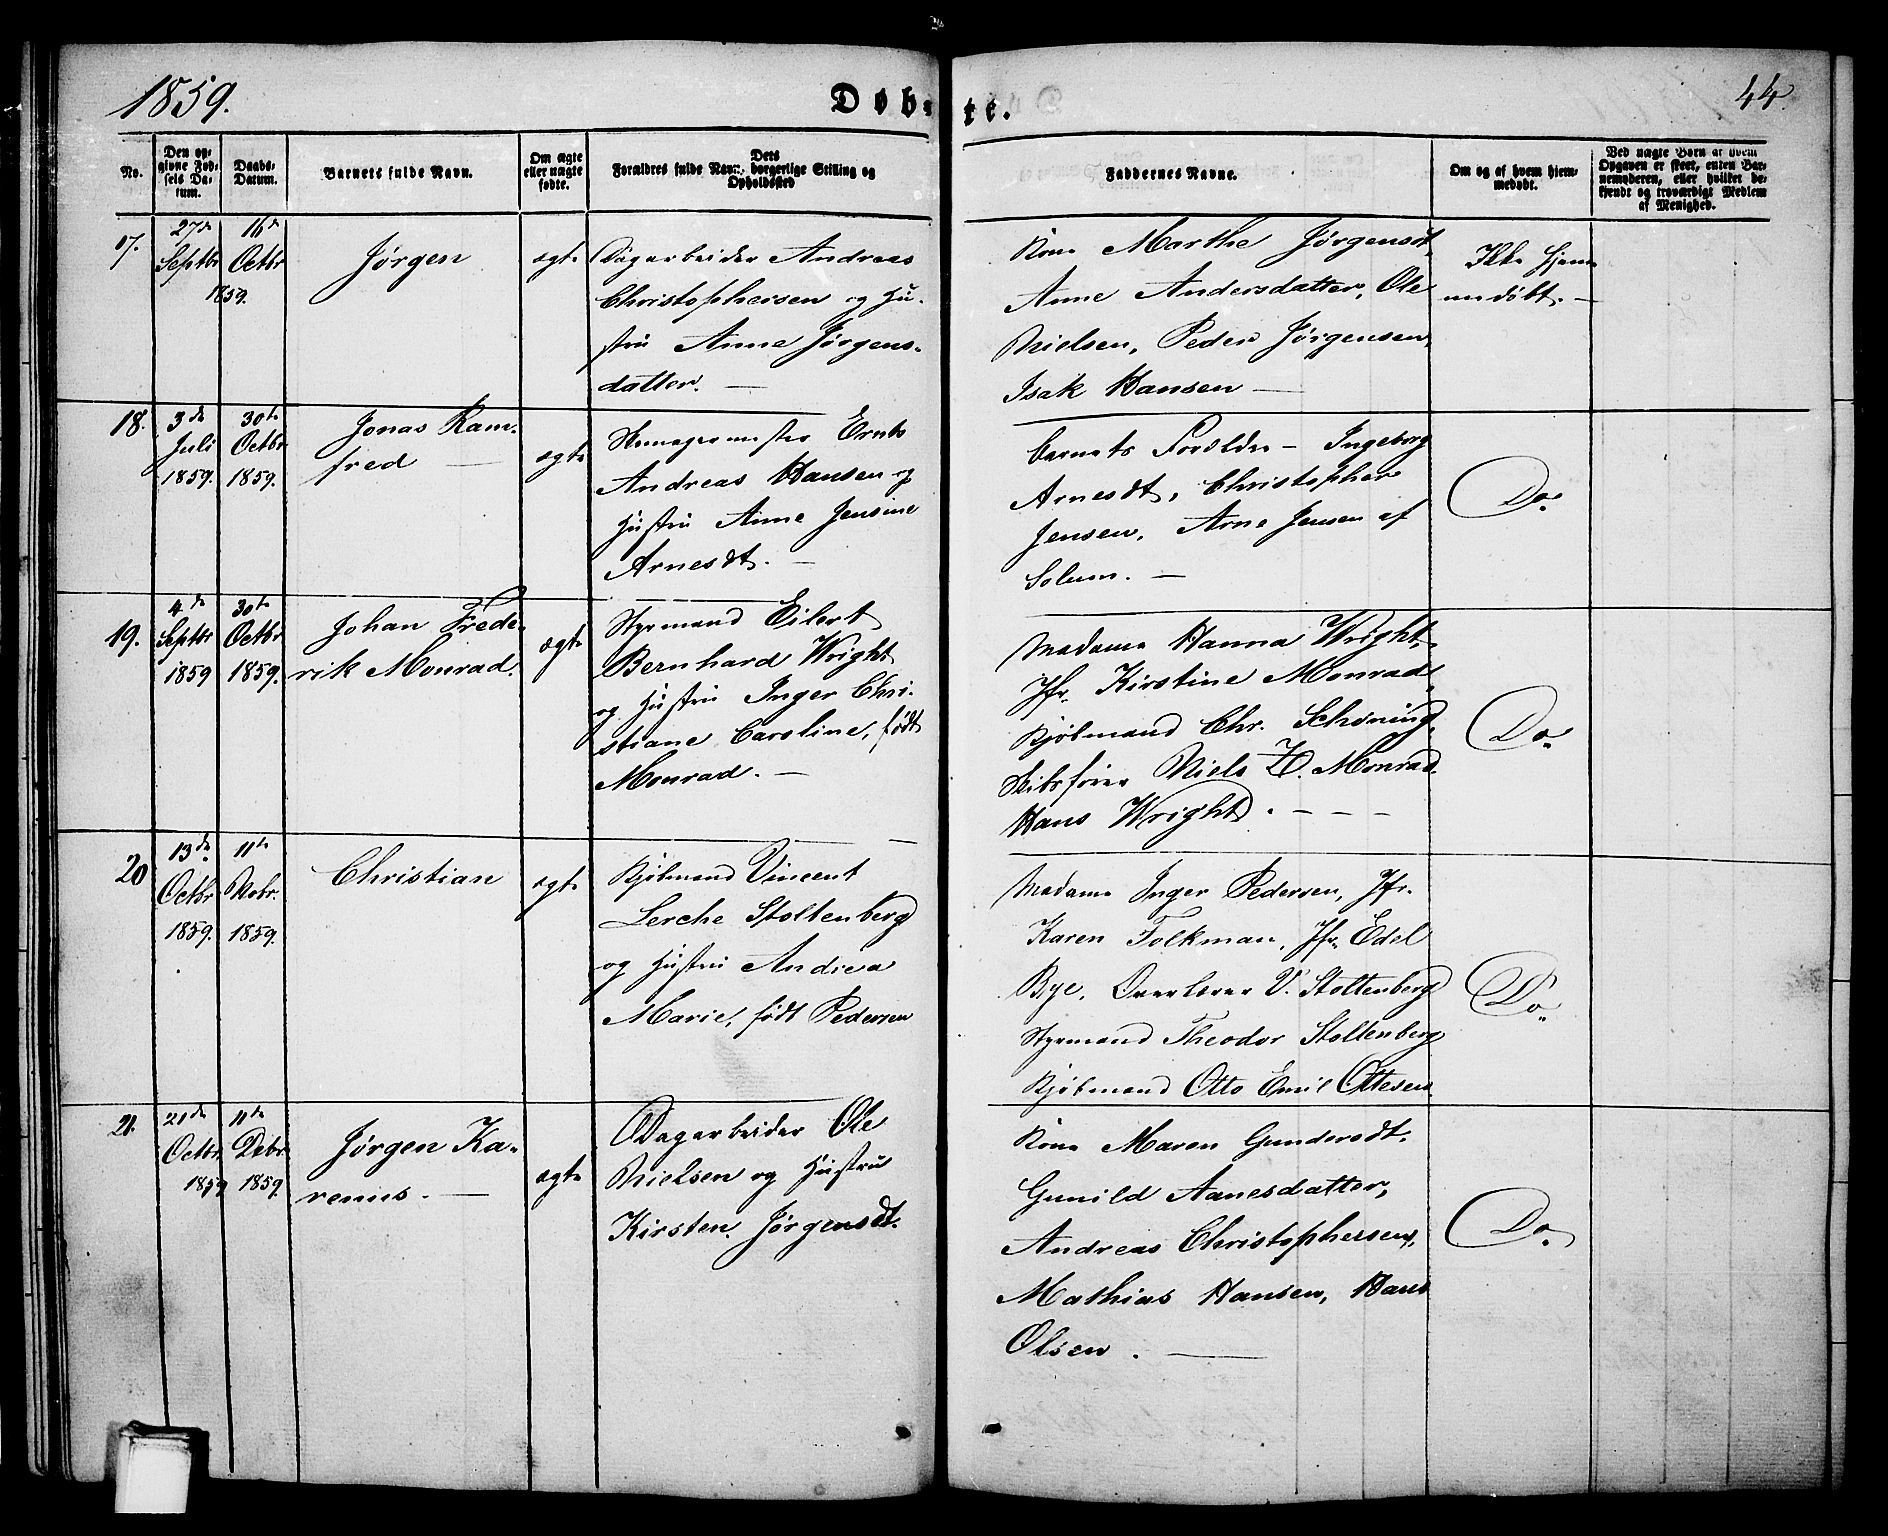 1859.
Døb-
te.
44.
No.
Den op-
givne Fød-
sels Da-
tum.
Daabs-
Datum.
Barnets fulde Navn.
Om ægte
eller uægte
fødte.
Dets
Forældres fulde Navn, borgerlige Stilling og
Opholdssted
Faddernes Navne.
Om og af hvem hjem-
medøbt.
Ved uægte Børn af hvem
Opgaven er skeet, enten Bar-
nemoderen, eller hvilket be-
kjendt og troværdigt Medlem
af Menighed.
17.
27de
Septbr
16de
Octbr
1859.
Jørgen
ægte
Dagarbeider Andreas
Christophersen og Hu-
stru Anne Jørgens-
datter. —
Kone Marthe Jørgensdt,
Anne Andersdatter, Ole
Nielsen, Peder Jørgensen,
Isak Hansen —
Ikke Hjem-
medøbt. —
18.
3de
Juli
1859.
30te
Octbr
1859.
Jonas Ram-
fred —
ægte
Andreas Hansen og
Hustru Anne Jensine
Arnesdt. —
Barnets Forældre – Ingeborg
Arnesdt, Christopher
Jensen, Arne Jensen af
Solum. —
Do.
19.
4de
Septbr
1859
30te
Octbr
1859.
Johan Frede-
rik Monrad.
ægte
Styrmand Eilert
Bernhard Wright
og Hustru Inger Chri-
stiane Caroline, født
Monrad. —
Madame Hanna Wright,
Jfr. Kirstine Monrad,
Kjøbmand Chr. Schøning,
Skibsfører Niels Z. Monrad.
Hans Wright. - - -
Do.
20
13de
Octbr
1859.
11te
1859.
Christian
ægte
Kjøbmand Vincent
Lerche Stoltenberg
og Hustru Andrea
Marie, født Pedersen
Madame Inger Pedersen, Jfr.
Karen Folkman, Jfr. Edel
Bye, Overlærer V. Stoltenberg
Styrmand Theodor Stoltenberg
Kjøbmand Otto Emil Ottesen
Do.
21.
21de
Octbr
1859
11te
Debr
1859.
Jørgen Ka-
renius. —
ægte
Dagarbeider Ole
Nielsen og Hustru
Kirsten Jørgensdt.
Kone Maren Gundersdt.
Gunild Aanesdatter,
Andreas Christophersen,
Mathias Hansen, Hans
Olsen. —
Do.